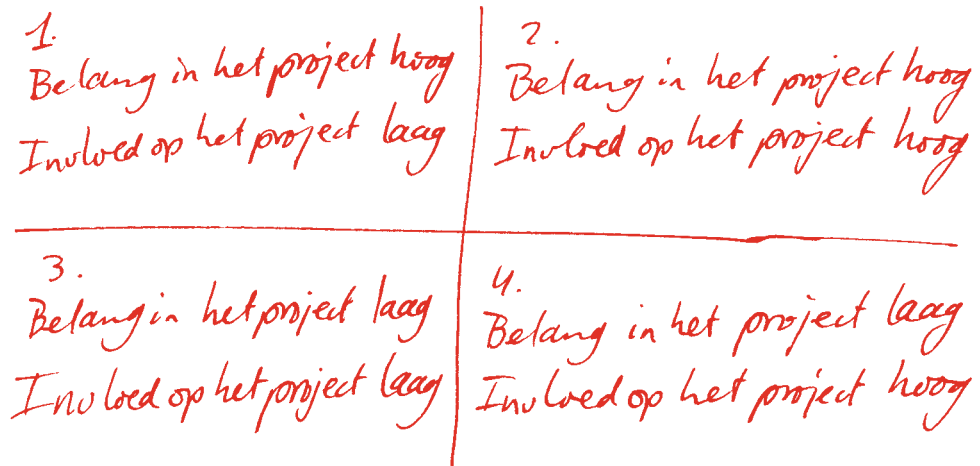 1.
Belang in het project hoog
Invloed op het project laag
2.
Belang in het project hoog
Invloed op het project hoog
3.
Belang in het project laag
Invloed op het project laag
4.
Belang in het project laag
Invloed op het project hoog